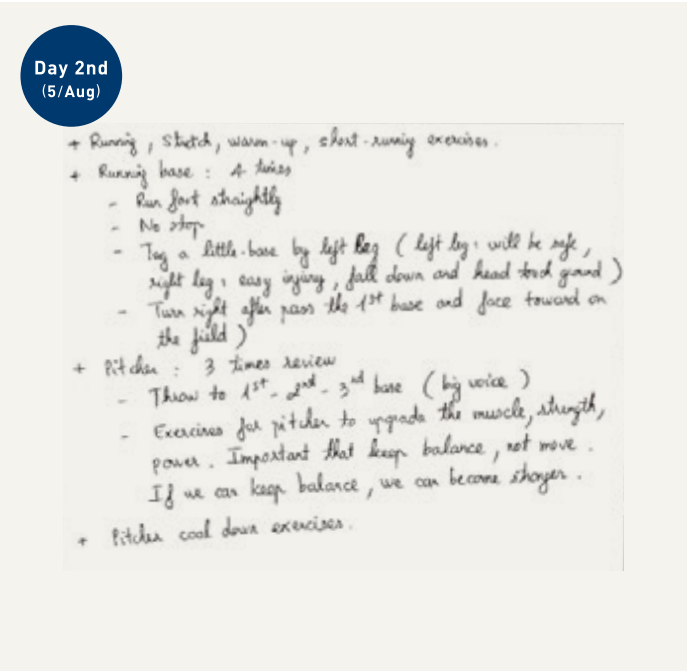 Day 2nd
(5/Aug)
+ Running, Stretch, warm-up, short-running exercises.
+ Running base : 4 times
- Run fast straightly
- No stop
- Tag a little-base by left leg ( left leg : will be safe,
right leg : easy injury, fall down and head touch ground )
- Turn right after pass the 1st base and face toward on
the field )
+ Pitcher : 3 times review
- Throw to 1st - 2nd - 3nd base ( big voice )
- Exercises for pitcher to upgrade the muscle, strength,
power. Important that keep balance, not move.
If we can keep balance, we can become stronger.
+ Pitcher cool down exercises.